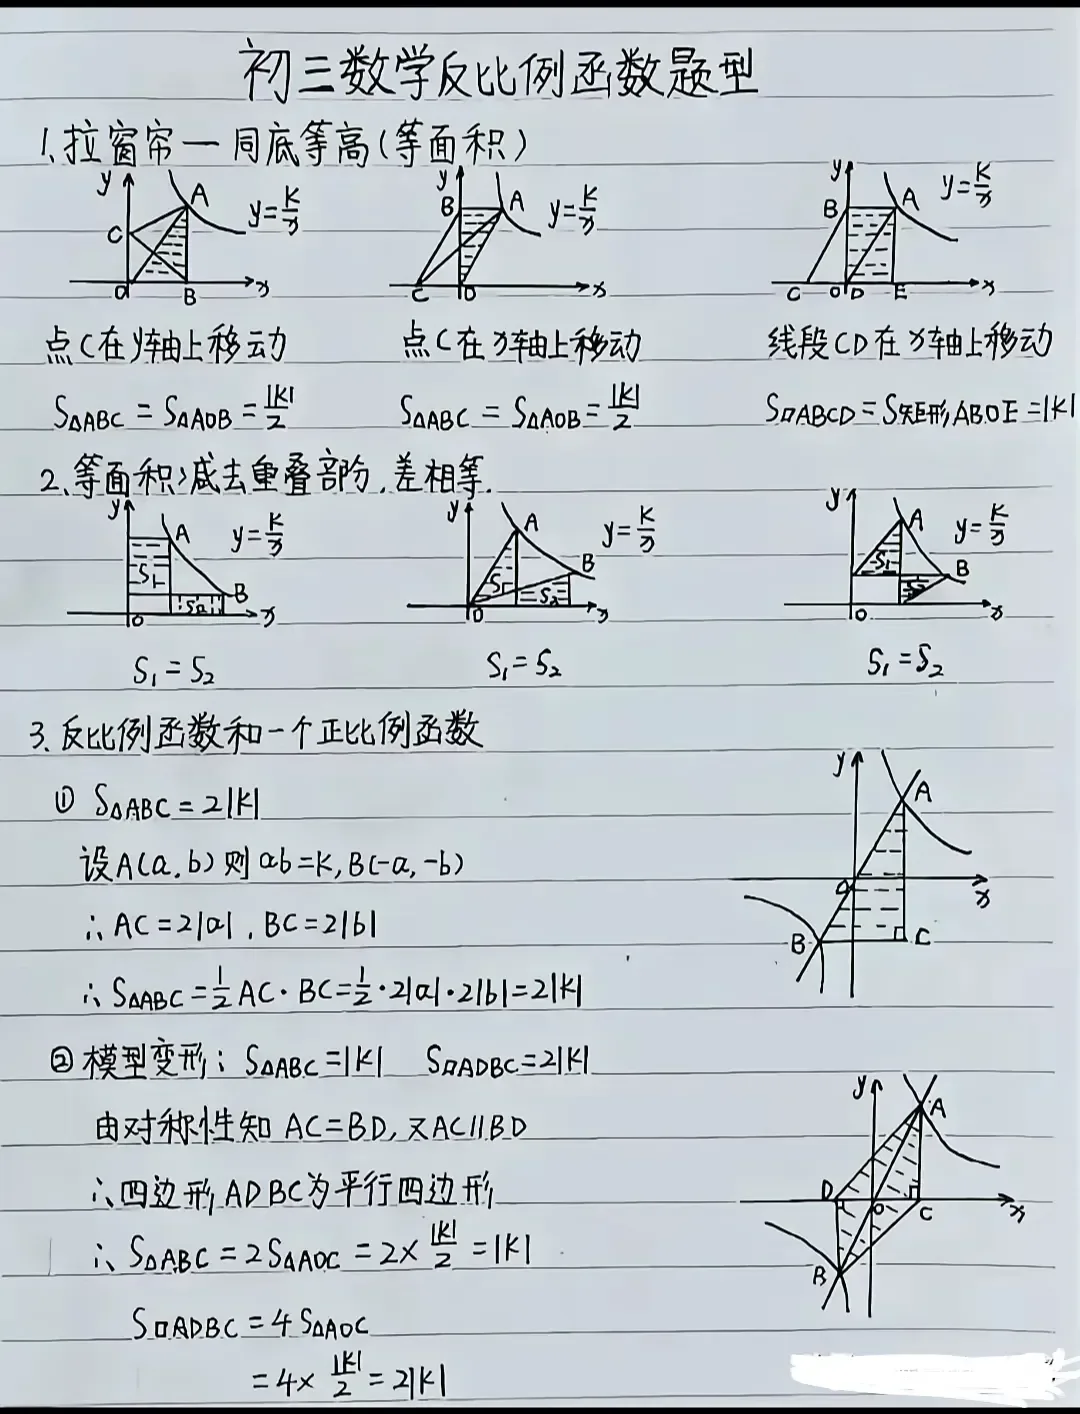 初三数学反比例函数题型
1、拉窗帘—同底等高(等面积)
y A y=K/x C O B x
y B A y=K/x C O x
y B A y=K/x C O D E x
点C在y轴上移动 点C在x轴上移动 线段CD在x轴上移动
S△ABC = S△AOB = |K|/2 S△ABC = S△AOB = |K|/2 S▱ABCD = S矩形ABOE = |K|
2、等面积减去重叠部分,差相等.
y A y=K/x S₁ B S₂ O x
y A y=K/x B S₁ S₂ O x
y A y=K/x S₁ B S₂ O x
S₁ = S₂ S₁ = S₂ S₁ = S₂
3、反比例函数和一个正比例函数
① S△ABC = 2|K|
设A(a,b)则ab=K,B(-a,-b)
∴AC=2|a|,BC=2|b|
∴S△ABC=1/2AC·BC=1/2·2|a|·2|b|=2|K|
y A O x B C
② 模型变形:S△ABC=|K| S▱ADBC=2|K|
由对称性知AC=BD,又AC//BD
∴四边形ADBC为平行四边形
∴S△ABC=2S△AOC=2×|K|/2=|K|
S▱ADBC=4S△AOC
=4×|K|/2=2|K|
y A D O C x B